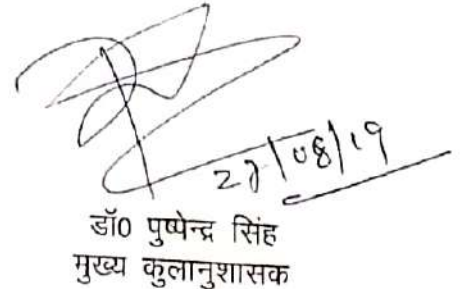 27/08/19
डॉ0 पुष्पेन्द्र सिंह
मुख्य कुलानुशासक